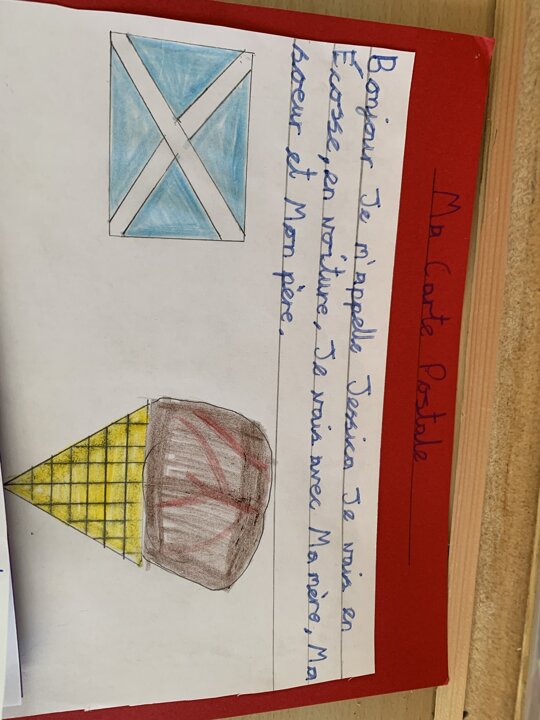 Ma Carte Postale
Bonjour Je m'appelle Jessica Je vais en
Écosse, en voiture, Je vais avec Ma mère, Ma
soeur et Mon père.